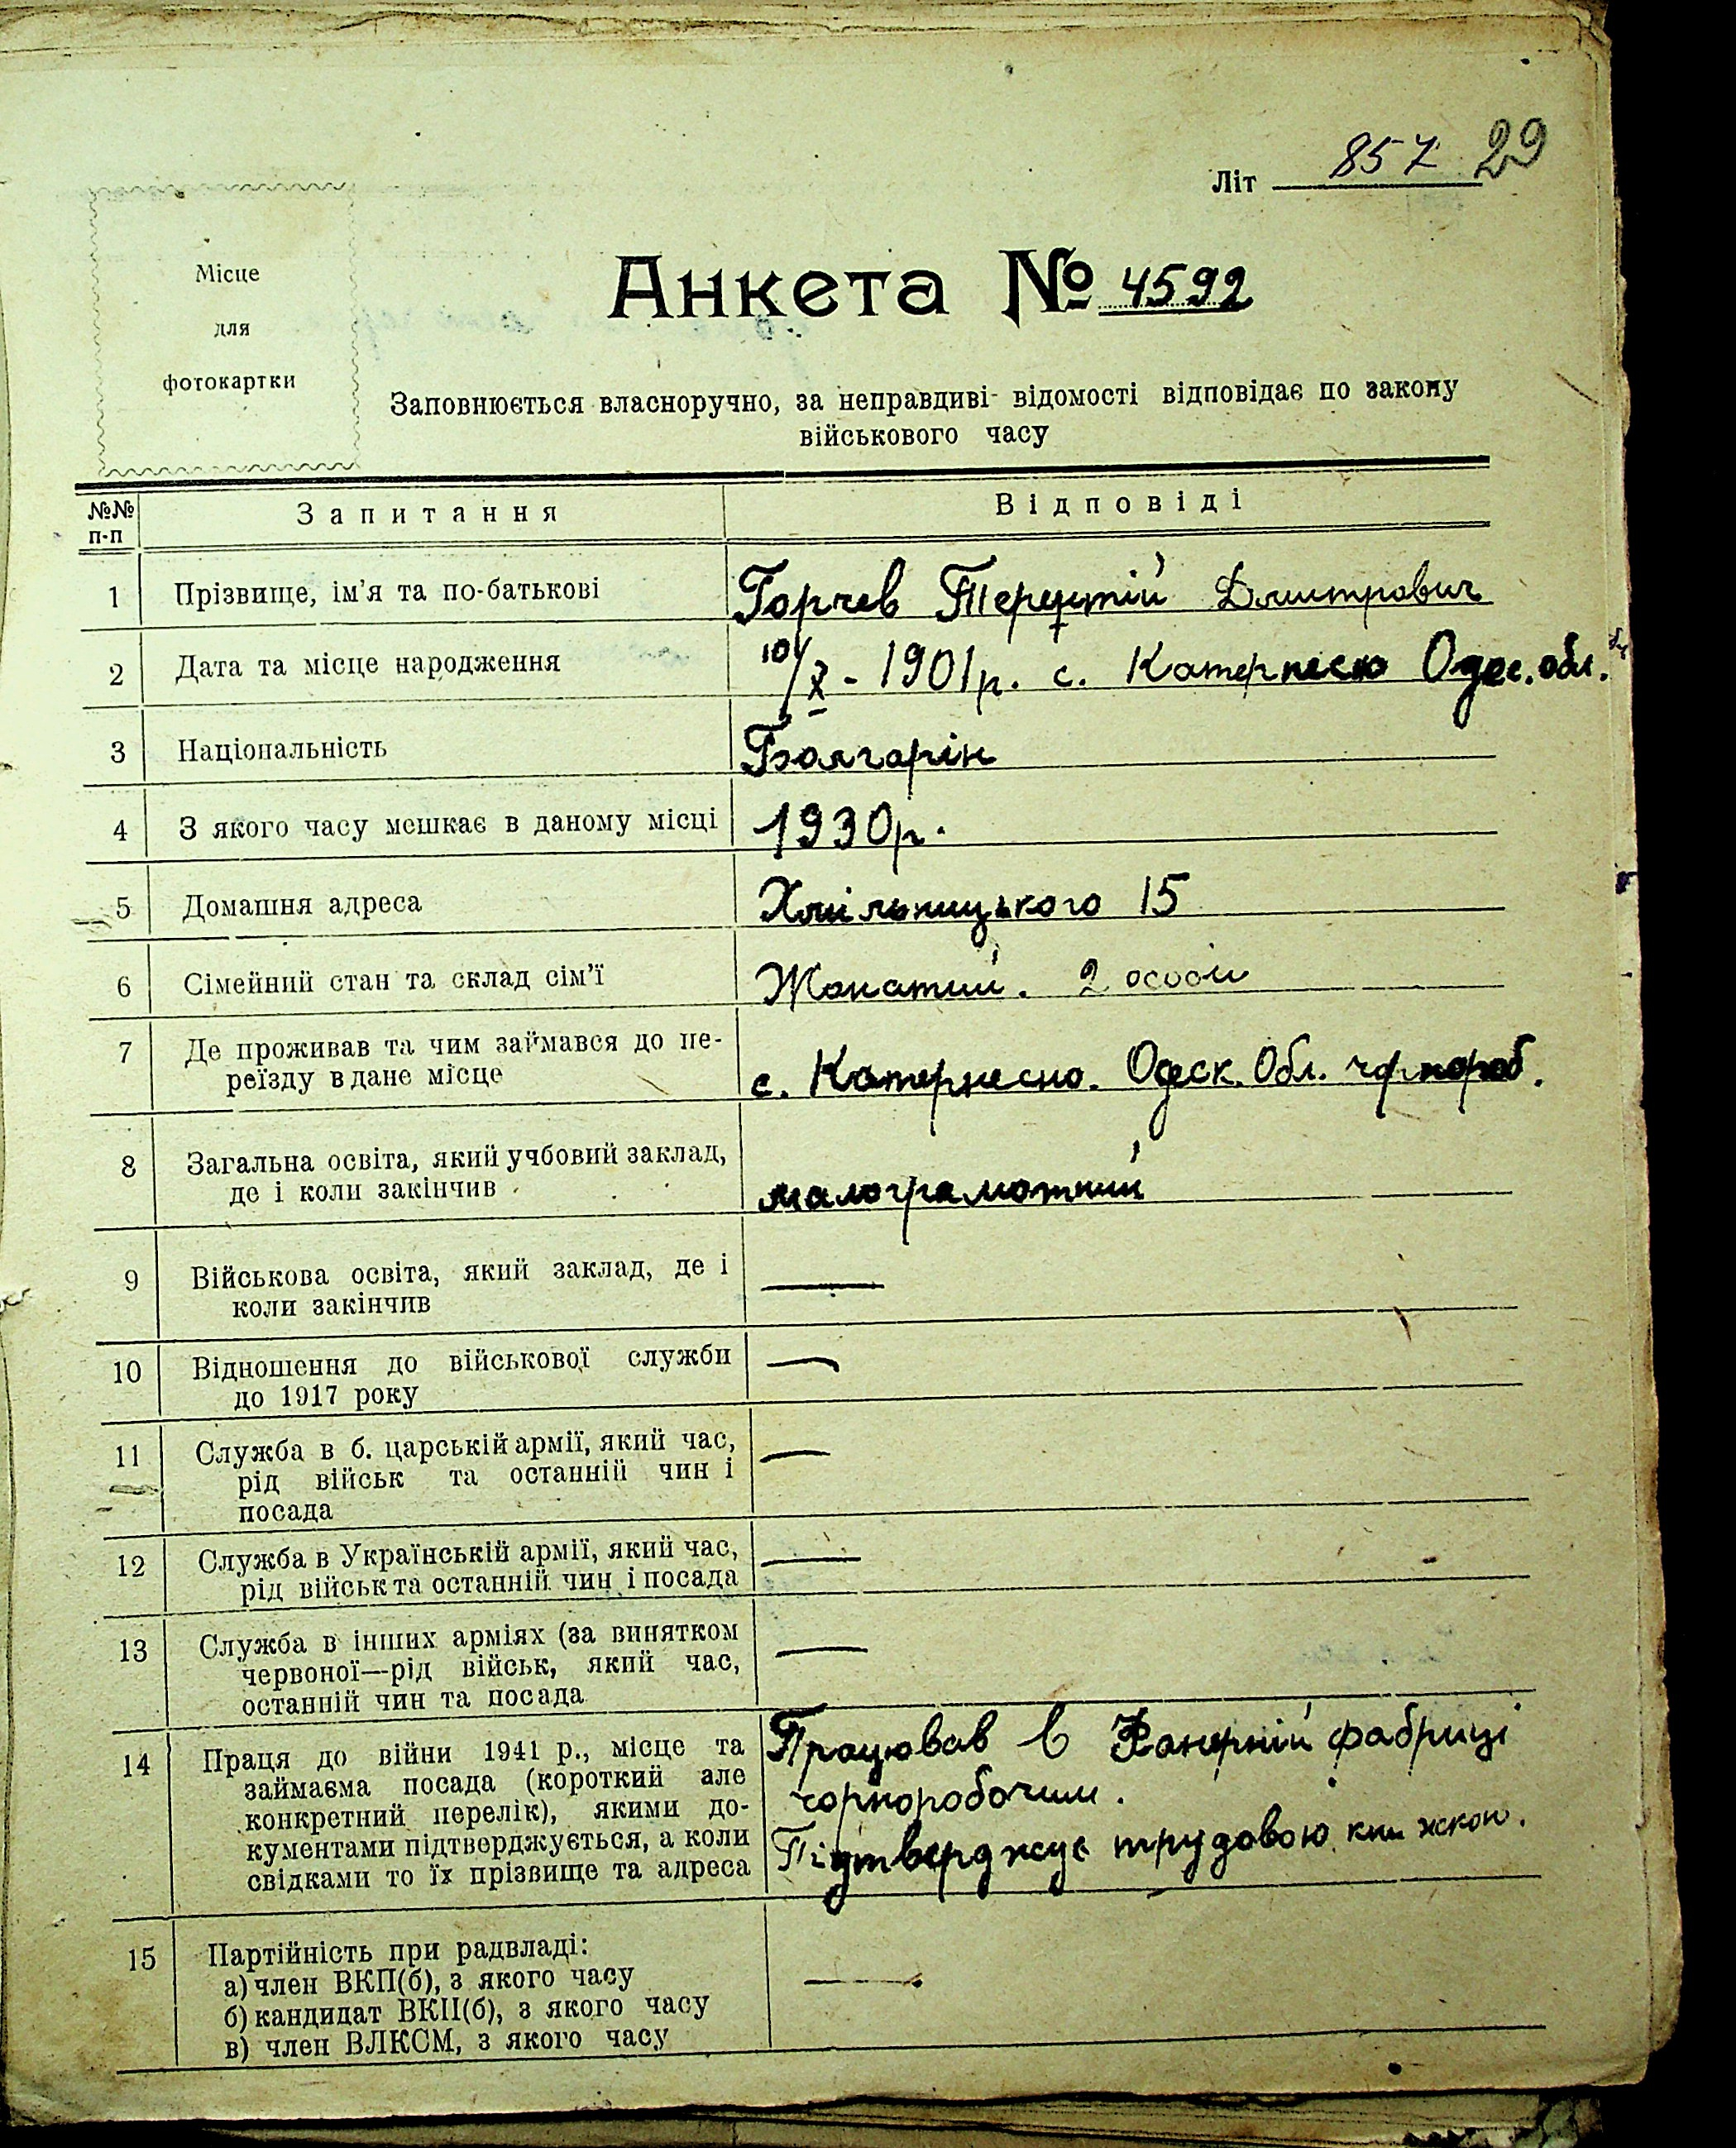 Літ 857 29
Місце
для
фотокартки
Анкета № 4592
Заповнюється власноручно, за неправдиві відомості відповідає по закону
військового часу
№№ п-п Запитання Відповіді
1 Прізвище, ім'я та по-батькові Горчев Терентій Дмитрович
2 Дата та місце народження 10/X - 1901р. с. Одес. обл.
3 Національність Болгарін
4 З якого часу мешкає в даному місці 1930р.
5 Домашня адреса Хмільницького 15
6 Сімейний стан та склад сім'ї Жонатий. 2 особи
7 Де проживав та чим займався до пе-
реїзду в дане місце с. Одеск. Обл. чорнороб.
8 Загальна освіта, який учбовий заклад,
де і коли закінчив малограмотний
9 Військова освіта, який заклад, де і
коли закінчив —
10 Відношення до військової служби
до 1917 року —
11 Служба в б. царській армії, який час,
рід військ та останній чин і
посада —
12 Служба в Українській армії, який час,
рід військ та останній чин і посада —
13 Служба в інших арміях (за винятком
червоної—рід військ, який час,
останній чин та посада —
14 Праця до війни 1941 р., місце та
займаєма посада (короткий але
конкретний перелік), якими до-
кументами підтверджується, а коли
свідками то їх прізвище та адреса
Працював в Фанерній фабриці
чорноробочим.
Підтверджує трудовою книжкою.
15 Партійність при радвладі:
а) член ВКП(б), з якого часу
б) кандидат ВКП(б), з якого часу
в) член ВЛКСМ, з якого часу
—